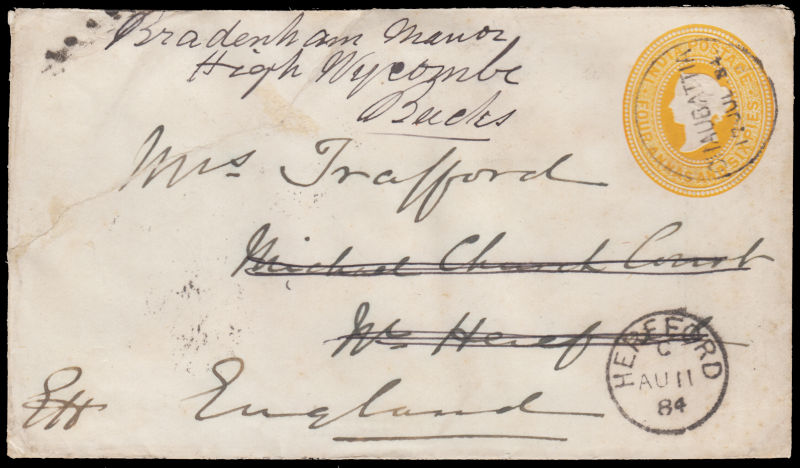 Bradenham Manor
High Wycombe
Bucks
Mrs Trafford
Michael Church Court
Nr Hereford
England
INDIA POSTAGE
FOUR ANNAS SIX PIES
CHAUBATTIA
12 JUL 84
HEREFORD
C
AU 11
84